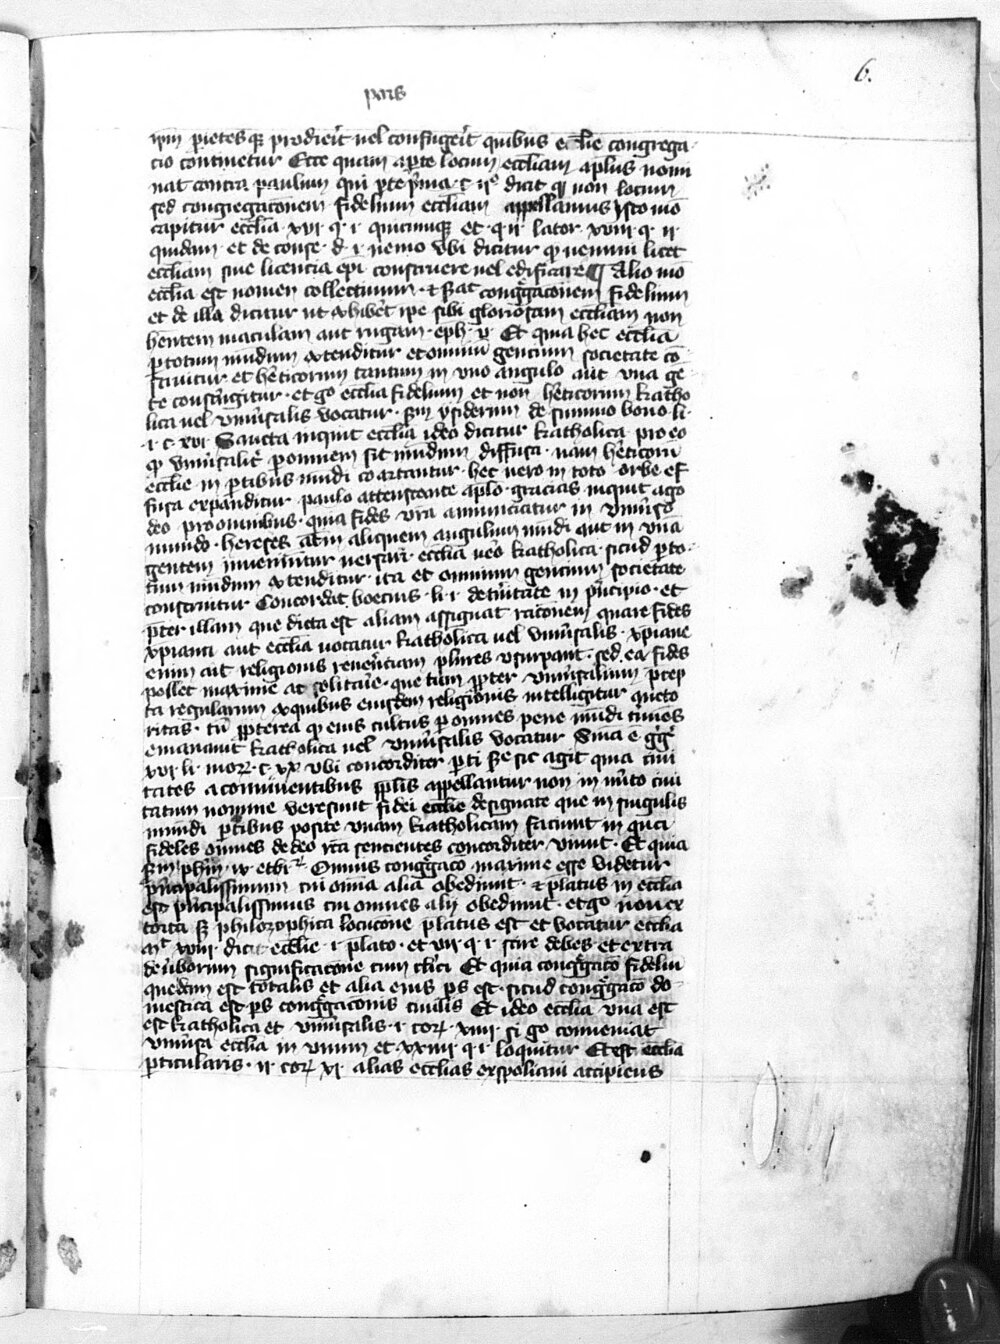 6.
pars
ipm pietesq prodierit vel confugerit quibus ecclie congrega
cio continetur Ecce quam apte locum eccliam aplus nomi
nat contra paulum qui pte pma c iio dicit q non locum
sed congregacionem fidelium eccliam appellamus Isto mo
capitur ecclia xvi q i quicunq et q ii lator xviii q ii
quidam et de conse d i nemo Vbi dicitur q nemini licet
eccliam sine licencia epi construere vel edificare ¶ Alio mo
ecclia est nomen collectiuum et stat congregaconem fidelium
et de illa dicitur ut exhiberet ipe sibi gloriosam eccliam non
hentem maculam aut rugam eph v Et quia hec ecclia
p totum mudum extenditur et omnium gencium societate co
struitur et heticorum tantum in vno angulo aut vna ge
te constringitur ergo ecclia fidelium et non heticorum katho
lica vel vniusalis vocatur Sm ysiderum de summo bono li
i c xvi Sancta inquit ecclia ideo dicitur katholica pro eo
q vniusalit p omnem sit mudum diffusa nam heticorum
ecclie in ptibus mudi coartantur hec vero in toto orbe ef
fusa expanditur paulo attestante aplo gracias inquit ago
deo pro omnibus quia fides vra annunciatur in vniuso
mundo hereses autem aliquem angulum mudi aut in vna
gentem inueniuntur versari ecclia vero katholica sicud p to
tum mudum extenditur ita et omnium gencium societate
construitur Concordat boecius li i de trinitate in principio et
pter illam que dicta est aliam assignat raconem quare fides
xpiana aut ecclia vocatur katholica vel vniusalis xpiane
enim ait religionis reuerentiam plures vsurpant sed ea fides
pollet maxime ac solitarie que tum ppter vniusalium pcep
ta regularum ex quibus eiusdem religionis intelligitur aucto
ritas tum ppterea q eius cultus p omnes pene mudi tminos
emanauit katholica vel vniusalis vocatur
xvi li mor c xx vbi concorditer
tates a conuiuentibus pplis appellantur non in mito ciui
tatum nomine vere sunt fidei ecclie designate que in singulis
mundi ptibus posite vnam katholicam faciunt in qua
fideles omnes de deo rcta sentientes concorditer viuunt Et quia
sm phm Omnis congregaco maxime esse videtur
principalissimum cui omnia alia obediunt et platus in ecclia
est principalissimus cui omnes alii obediunt ergo non ex
torta philozophica locucone platus est et vocatur ecclia
xviii dicit ecclie i plato et vii q i scire debes et extra
de verborum significacone cum clici Et quia congregaco fideliu
quedam est totalis et alia eius ps est sicud congregaco do
mestica est ps congregaconis ciuilis Et ideo ecclia vna est
est katholica et vniusalis i cor xiiii si go conueniat
vniusa ecclia in vnum et xxiiii q i loquitur Et est ecclia
pticularis ii cor xi alias ecclias exspoliaui accipiens